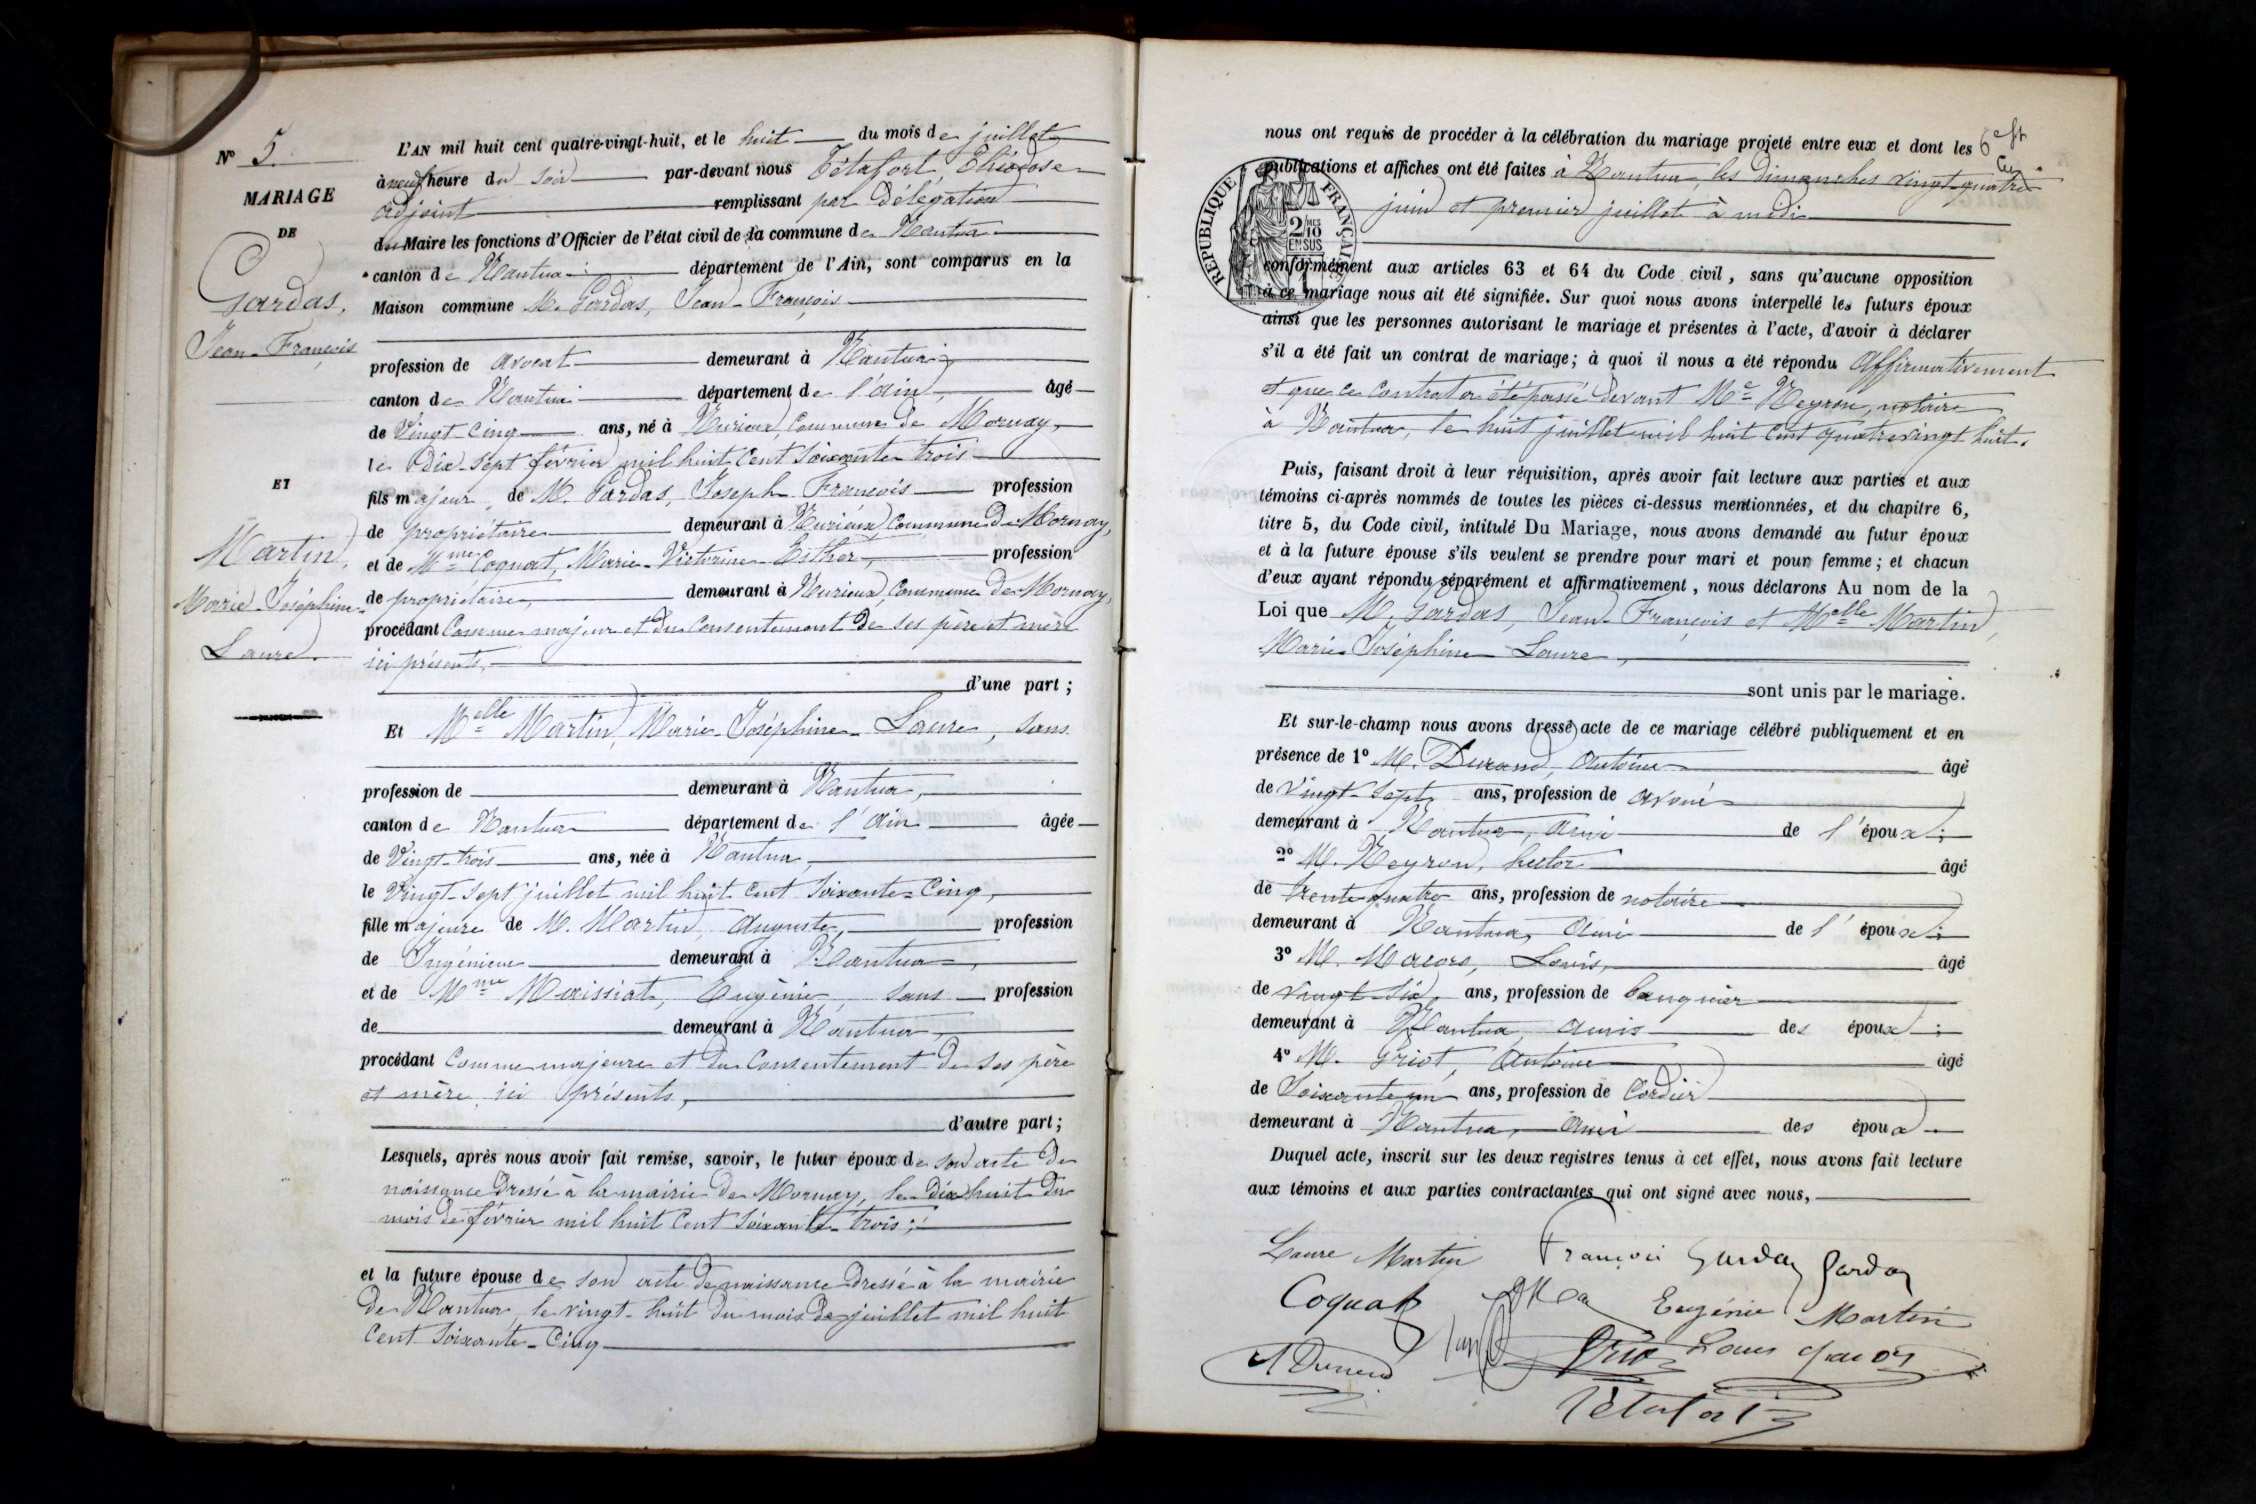 N° 5
MARIAGE
DE
Gardas,
Jean-François
ET
Martin,
Marie-Joséphine-
Laure
L'AN mil huit cent quatre-vingt-huit, et le huit du mois de juillet
à neuf heure du soir par-devant nous Tétafort, Théodose
adjoint remplissant par délégation
du Maire les fonctions d'Officier de l'état civil de la commune de Nantua
canton de Nantua département de l'Ain, sont comparus en la
Maison commune M. Gardas, Jean-François
profession de avocat demeurant à Nantua
canton de Nantua département de l'Ain, âgé
de Vingt-cinq ans, né à Nurieux, Commune de Mornay,
le dix-sept février mil huit cent soixante-trois
fils majeur de M. Gardas, Joseph François profession
de propriétaire demeurant à Nurieux, commune de Mornay,
et de Mme Coquat, Marie-Victorine-Esther, profession
de propriétaire, demeurant à Nurieux, Commune de Mornay,
procédant Comme majeur et du consentement de ses père et mère
ici présents,
d'une part ;
Et Melle Martin, Marie-Joséphine-Laure, sans
profession de demeurant à Nantua,
canton de Nantua département de l'Ain âgée
de Vingt-trois ans, née à Nantua,
le Vingt-sept juillet mil huit cent soixante-cinq,
fille majeure de M. Martin, Auguste, profession
de Ingénieur demeurant à Nantua,
et de Mme Maissiat, Eugénie, sans profession
de demeurant à Nantua,
procédant Comme majeure et du Consentement de ses père
et mère, ici présents,
d'autre part ;
Lesquels, après nous avoir fait remise, savoir, le futur époux de son acte de
naissance dressé à la mairie de Mornay, le dix huit du
mois de février mil huit cent soixante-trois ;
et la future épouse de son acte de naissance dressé à la mairie
de Nantua, le vingt-huit du mois de juillet mil huit
cent soixante-cinq
nous ont requis de procéder à la célébration du mariage projeté entre eux et dont les
publications et affiches ont été faites à Nantua, les dimanches vingt-quatre
juin et premier juillet à midi
RÉPUBLIQUE FRANÇAISE
2 MES
10
EN SUS
conformément aux articles 63 et 64 du Code civil, sans qu'aucune opposition
à ce mariage nous ait été signifiée. Sur quoi nous avons interpellé les futurs époux
ainsi que les personnes autorisant le mariage et présentes à l'acte, d'avoir à déclarer
s'il a été fait un contrat de mariage ; à quoi il nous a été répondu Affirmativement
et que ce contrat a été passé devant Me Neyron, notaire
à Nantua, le huit juillet mil huit cent quatrevingt huit.
Puis, faisant droit à leur réquisition, après avoir fait lecture aux parties et aux
témoins ci-après nommés de toutes les pièces ci-dessus mentionnées, et du chapitre 6,
titre 5, du Code civil, intitulé Du Mariage, nous avons demandé au futur époux
et à la future épouse s'ils veulent se prendre pour mari et pour femme ; et chacun
d'eux ayant répondu séparément et affirmativement, nous déclarons Au nom de la
Loi que M. Gardas, Jean-François et Melle Martin,
Marie-Joséphine Laure,
sont unis par le mariage.
Et sur-le-champ nous avons dressé acte de ce mariage célébré publiquement et en
présence de 1° M. Durand, Antoine âgé
de vingt-sept ans, profession de avoué
demeurant à Nantua, ami de l'époux ;
2° M. Neyron, hector âgé
de trente-quatre ans, profession de notaire
demeurant à Nantua, ami de l'époux ;
3° M. Macors, Louis, âgé
de vingt-six, ans, profession de banquier
demeurant à Nantua, amis des époux ;
4° M. Griot, Antoine âgé
de Soixante-un ans, profession de Cordier
demeurant à Nantua, ami des époux
Duquel acte, inscrit sur les deux registres tenus à cet effet, nous avons fait lecture
aux témoins et aux parties contractantes qui ont signé avec nous,
Laure Martin François Gardas Gardas
Coquat Eugénie Martin
A Durand Griot Louis Macors
Tétafort